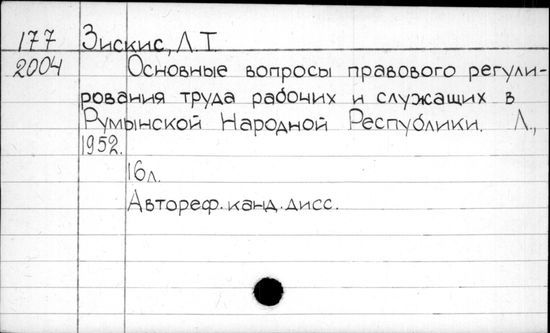 177 Зискис, Л.Т.
2004 Основные вопросы правового регули-
рования труда рабочих и служащих в
Румынской Народной Республики. Л.,
1952.
16л.
Автореф. канд. дисс.